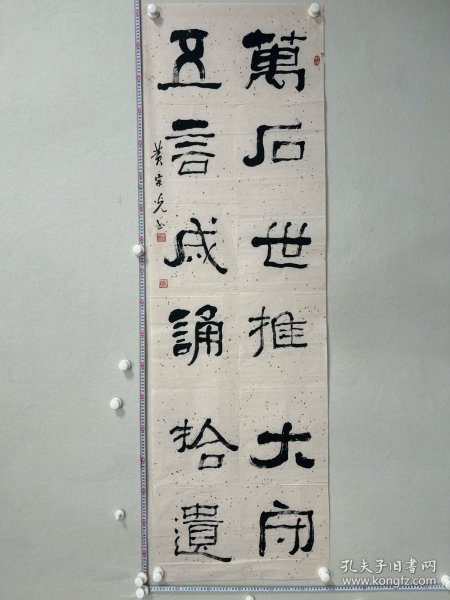 萬石世推大守
五言成誦拾遺
黄宗光书
孔夫子旧书网
www.kongfz.com